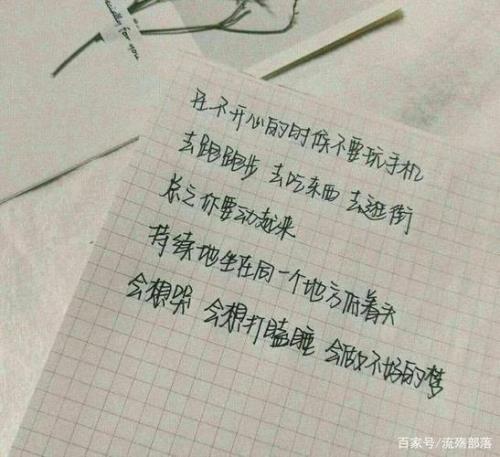 for you
在不开心的时候不要玩手机
去跑跑步 去吃东西 去逛街
总之你要动起来
持续地坐在同一个地方低着头
会想哭 会想打瞌睡 会做不好的梦
百家号/流殇部落